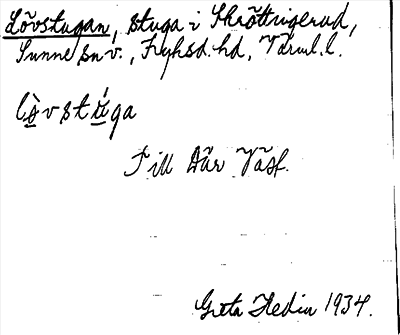 Lövstugan, stuga i Skröttigerud,
Sunne sn v., Fryksd. hd, Värml. l.
lò̱vstú̱ga
Till Där Väst.
Greta Hedin 1934.